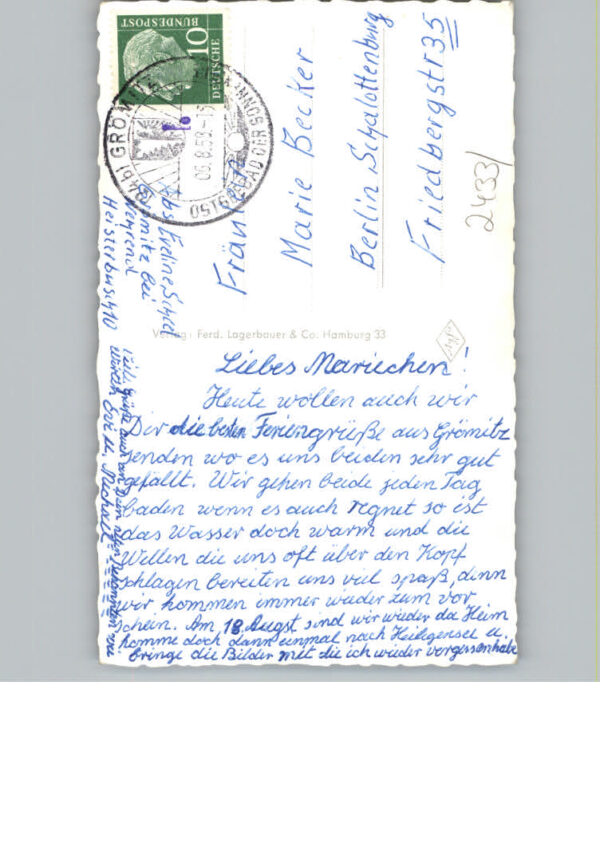 10
DEUTSCHE
BUNDESPOST
(24b) GRÖMITZ
OSTSEEBAD DER SONNENSEITE
06.8.59.-15
Abs. Eveline
Grömitz bei
Behrend
Fräulein
Marie Becker
Berlin Schalottenburg
Friedbergstr 35
2433/
Verlag: Ferd. Lagerbauer & Co. Hamburg 33
Liebes Mariechen!
Heute wollen auch wir
Dir die besten Feriengrüße aus Grömitz
senden wo es uns beiden sehr gut
gefällt. Wir gehen beide jeden Tag
baden wenn es auch regnet so ist
das Wasser doch warm und die
Wellen die uns oft über den Kopf
schlagen bereiten uns viel spaß, denn
wir kommen immer wieder zum vor
schein. Am 18 Augst sind wir wieder da Heim
komme doch dann einmal nach Heiligensee u.
bringe die Bilder mit die ich wieder vergessen habe
Viele grüße auch an Deine
Eve u. Michael